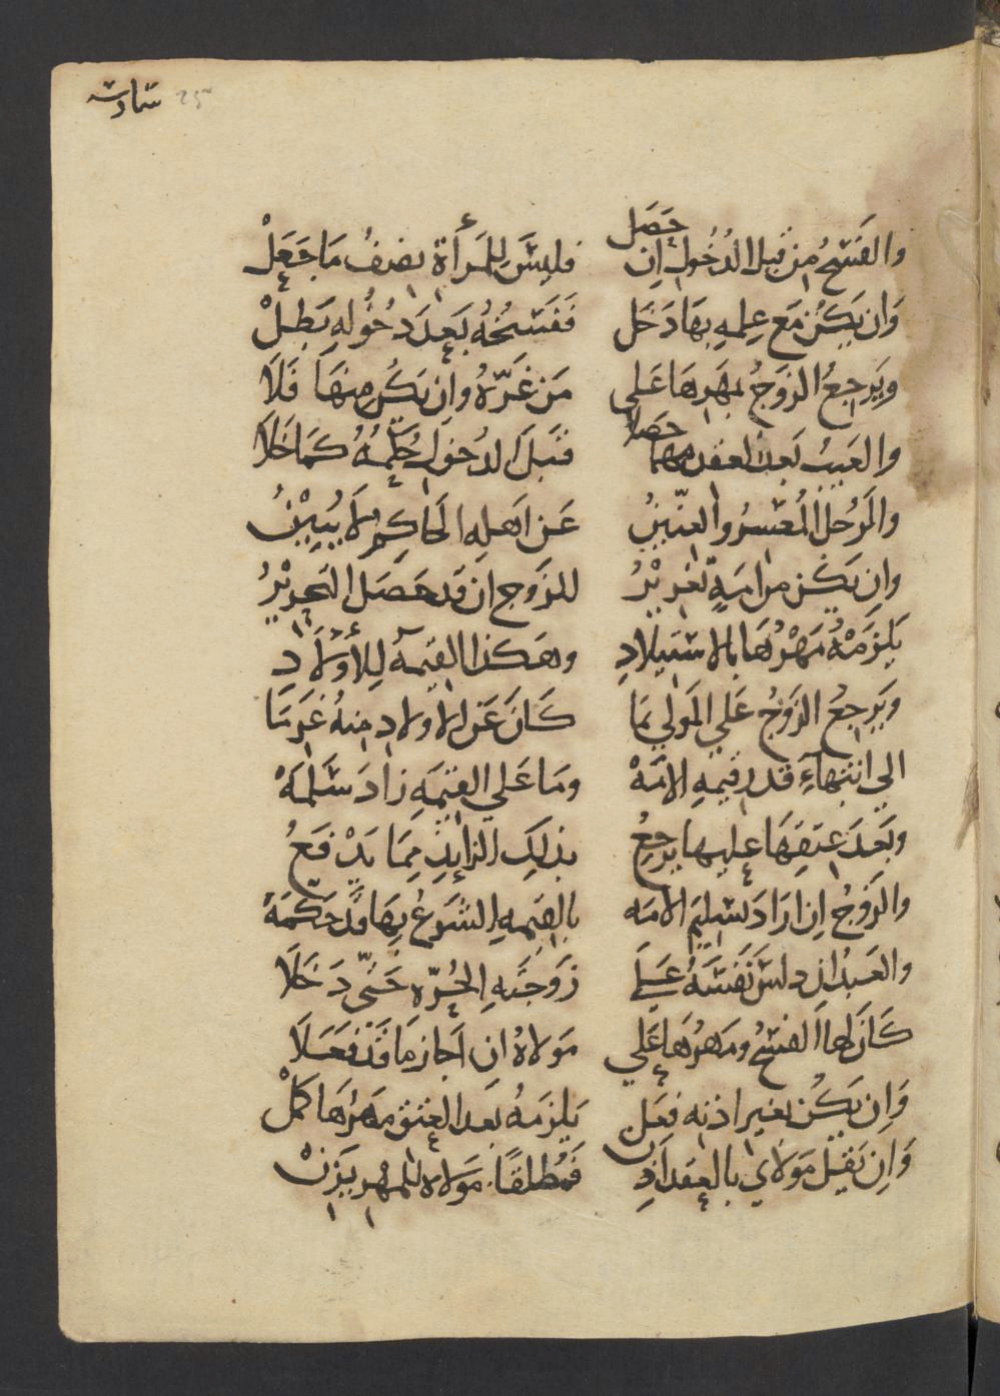 سادسة 25
والفَسْخُ مِن قبل الدُخُول اِن حَصَل فليسَ لِلمَرأة نصفُ مَا جَعَلْ
وَان يكُن مَع عِلمِهِ بهَا دَخَل فَفَسْخُهُ بَعدَ دخُولهِ بَطلْ
ويَرجعُ الزوجُ بمَهرهَا عَلى مَن غَرّهُ وان يكُن مِنهَا فَلَا
والعَيبُ بَعد العَقد مهما حَصلا قَبلَ الدخول حُكمُهُ كمَا خَلَا
والرجل المُعسرُ والعنّينُ عَن اهلِه الحَاكم لَا يُبِيْنُ
وان يكن من امَةٍ تغريْرُ للزوج ان قد حَصَل التحريْرُ
يَلزمْهُ مَهْرُهَا بالاستيلادِ وهكذا القيمَة لِلأولَادِ
ويَرجعُ الزوجُ عَلي المَولي بمَا كَانَ عَن الاولاد منهُ غَرمَا
الي انتهاءِ قدر قيمهِ الامَهْ ومَا عَلي القيمَهِ زادَ سَلمَهْ
وبَعدَ عِتقِهَا عليها يَرجِعُ بذلكِ الزايدِ ممَا يَدْفعُ
والزوجُ اِن ارَادَ تسليمَ الامَه بالقيمهِ الشرعُ بهَا قد حَكّمَهْ
والعَبدُ اِن دلسَ نَفسَهُ عَلي زوجَتهِ الحُرّه حَتّي دَخَلَا
كَانَ لهَا الفسخُ ومَهرُهَا عَلي مَولاهُ ان اجَاز مَا قَدْ فعَلَا
وَاِن يكُن بغير اذنه فعَل يَلزمهُ بَعد العِتق مَهرُهَا كَمَلْ
وَاِن يَقُل مَولَاي بالعقد اَذِن فمُطلقًا مَولاه للمهر يَزنْ